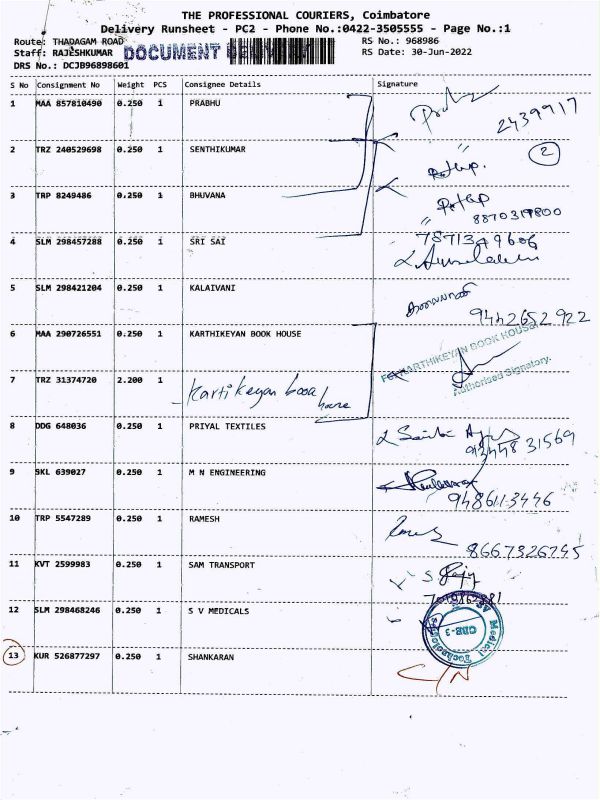 THE PROFESSIONAL COURIERS, Coimbatore
Delivery Runsheet - PC2 - Phone No.:0422-3505555 - Page No.:1
Route: THADAGAM ROAD RS No.: 968986
Staff: RAJESHKUMAR DOCUMENT RS Date: 30-Jun-2022
DRS No.: DCJB96898601
S No Consignment No Weight PCS Consignee Details Signature
1 MAA 857810490 0.250 1 PRABHU
2439917
2 TRZ 240529698 0.250 1 SENTHIKUMAR
2
3 TRP 8249486 0.250 1 BHUVANA
8870319800
4 SLM 298457288 0.250 1 SRI SAI
5 SLM 298421204 0.250 1 KALAIVANI
9442652922
6 MAA 290726551 0.250 1 KARTHIKEYAN BOOK HOUSE
KARTHIKEYAN BOOK HOUSE
Authorised Signatory.
7 TRZ 31374720 2.200 1 Kartikeyan booa house
8 DDG 648036 0.250 1 PRIYAL TEXTILES
9 SKL 639027 0.250 1 M N ENGINEERING
10 TRP 5547289 0.250 1 RAMESH
8667326745
11 KVT 2599983 0.250 1 SAM TRANSPORT
12 SLM 298468246 0.250 1 S V MEDICALS
CBE-3
13 KUR 526877297 0.250 1 SHANKARAN
C/N